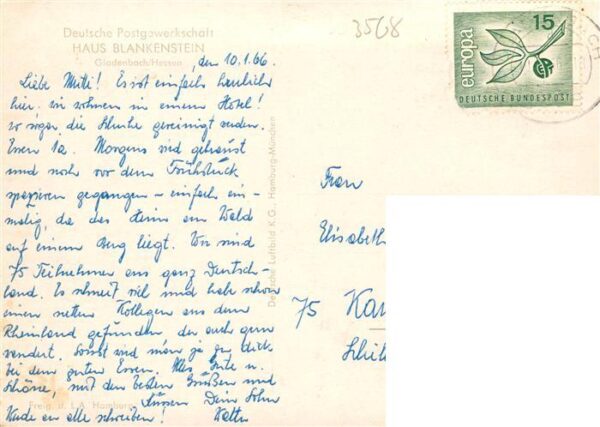 Deutsche Postgewerkschaft
HAUS BLANKENSTEIN
Gladenbach/Hessen
, den 10.1.66.
Liebe Mutti! Es ist einfach herrlich
hier. Wir wohnen in einem Hotel!
wo sogar die Schuhe gereinigt werden.
Essen 1a. Morgens wird geturnt
und noch vor dem Frühstück
spazieren gegangen – einfach ein-
malig, da das Heim am Wald
auf einem Berg liegt. Wir sind
75 Teilnehmer aus ganz Deutsch-
land. Es schneit viel und habe schon
einen netten Kollegen aus dem
Rheinland gefunden der auch gern
wandert. Sonst wird man ja zu dick
bei dem guten Essen. Alles Gute u.
Schöne, mit den besten Grüßen und
Küssen Dein Sohn
Werde an alle schreiben!
Freig. d. L.A. Hamburg
Deutsche Luftbild K.G., Hamburg-München
3568
europa
15
DEUTSCHE BUNDESPOST
Frau
Elisabeth
75 Ka